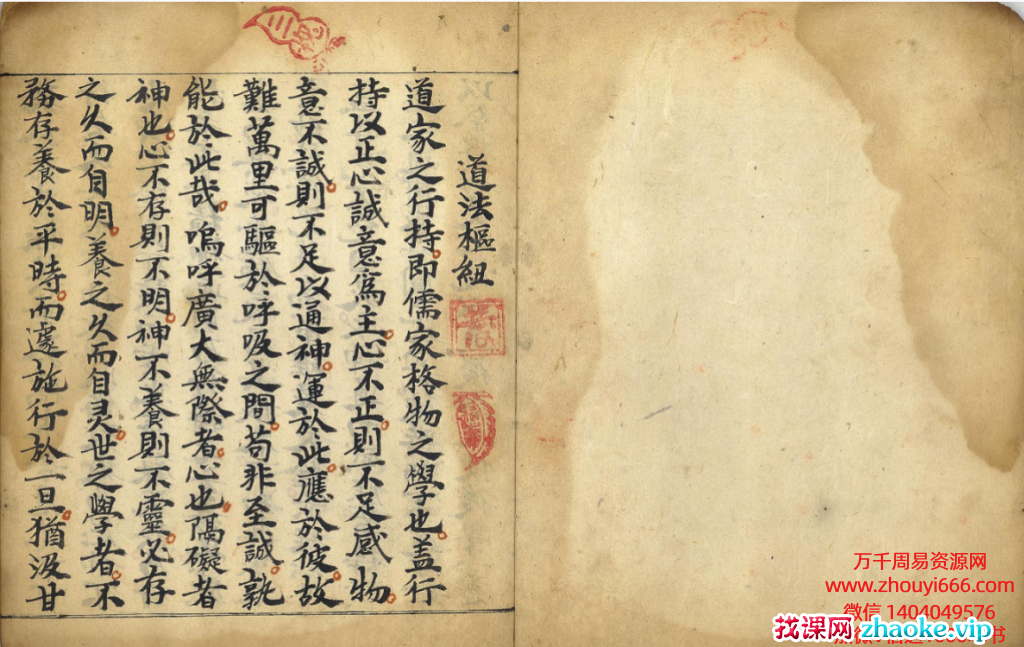 道法樞紐
道家之行持即儒家格物之學也蓋行
持以正心誠意爲主心不正則不足感物
意不誠則不足以通神運於此應於彼故
難萬里可驅於呼吸之間苟非至誠孰
能於此哉嗚呼廣大無際者心也隔礙者
神也心不存則不明神不養則不靈必存
之久而自明養之久而自灵世之學者不
務存養於平時而遽施行於一旦猶汲甘
万千周易资源网
www.zhouyi666.com
微信 1404049576
找课网 zhaoke.vip